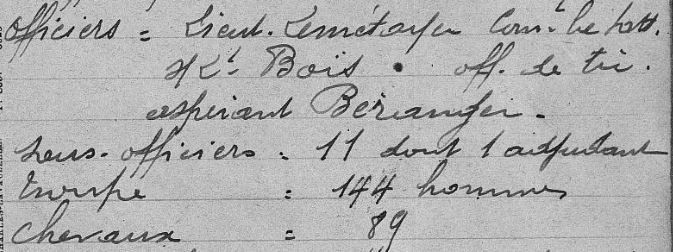 officiers = Lieut. Lemétayer Com.t la batt.
Lt. Bois. off. de tir.
aspirant Béranger.
sous-officiers = 11 dont 1 adjudant
Troupe = 144 hommes
chevaux = 89